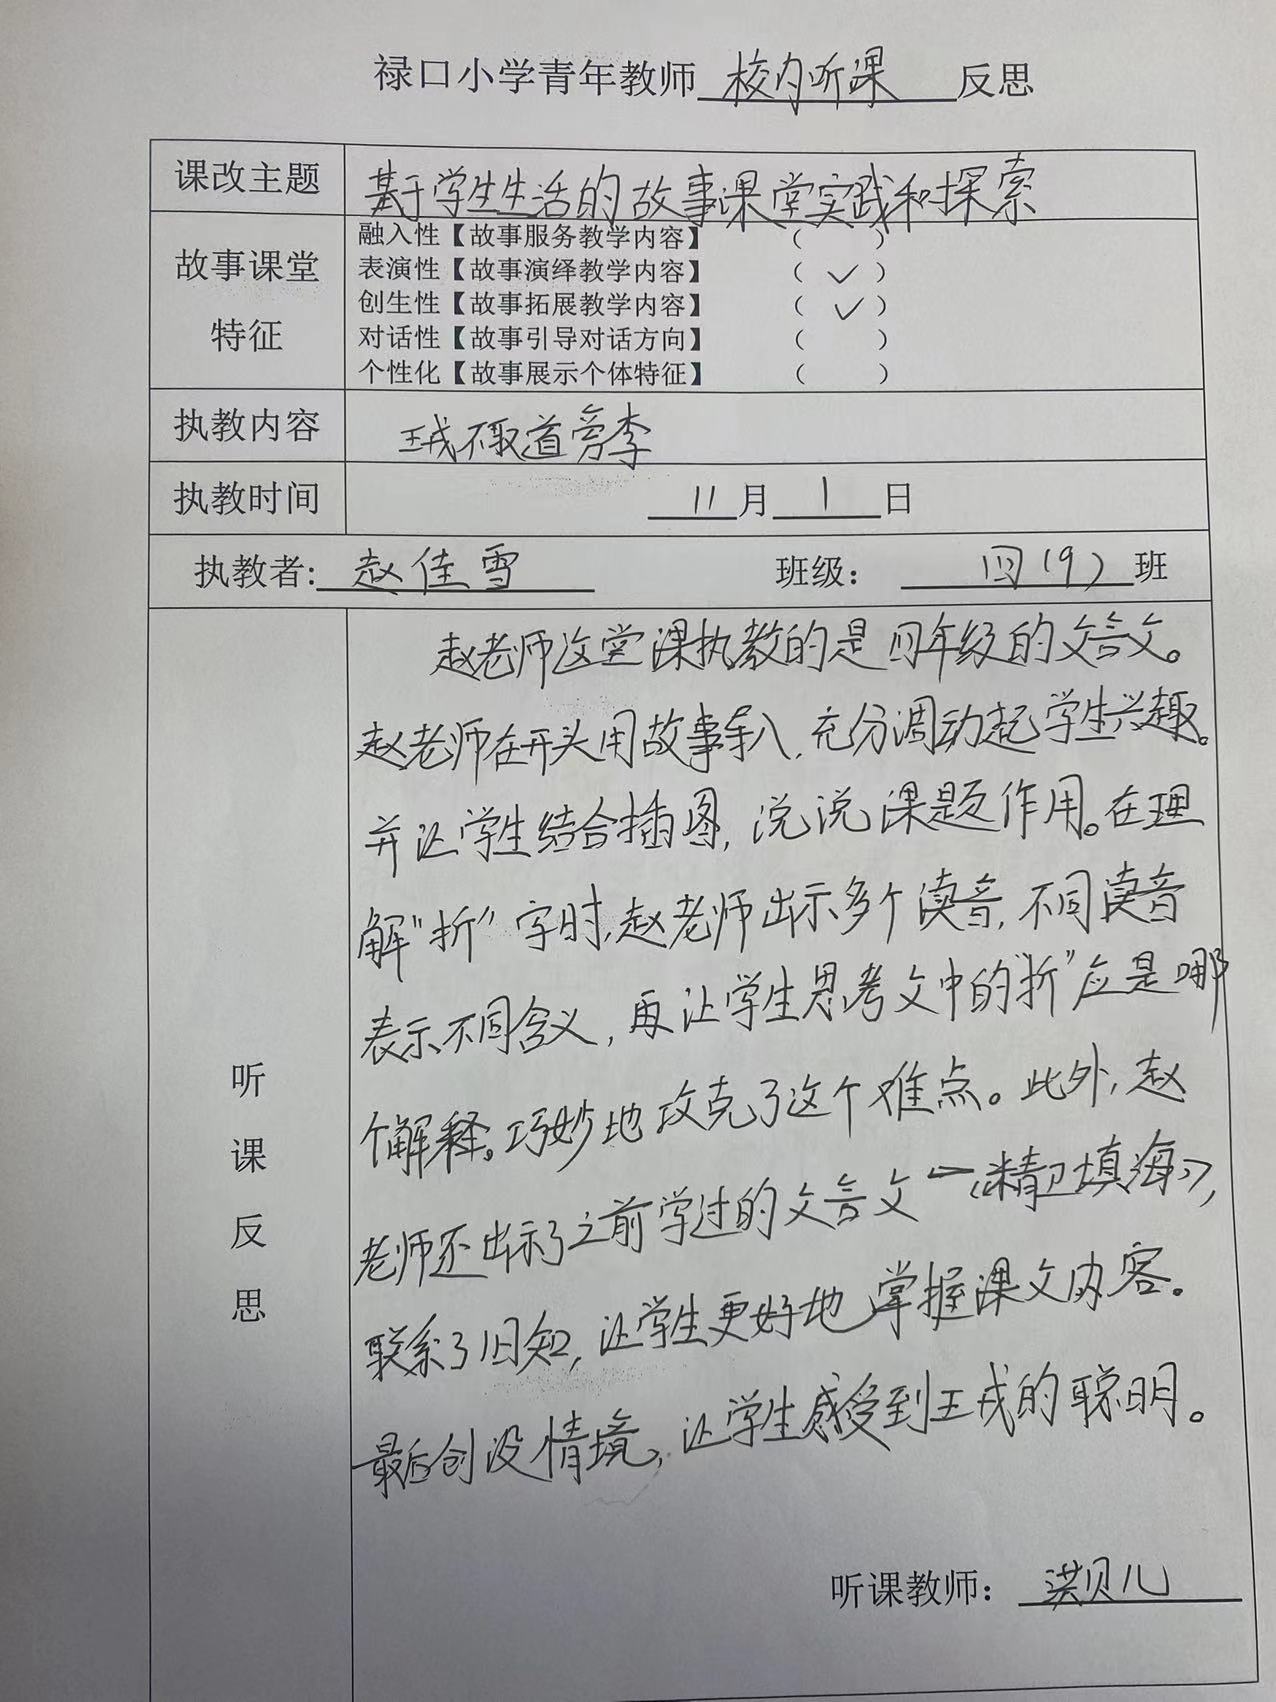 禄口小学青年教师 校内听课 反思
课改主题 基于学生生活的故事课堂实践和探索
故事课堂
特征
融入性【故事服务教学内容】 （ ）
表演性【故事演绎教学内容】 （ ✓ ）
创生性【故事拓展教学内容】 （ ✓ ）
对话性【故事引导对话方向】 （ ）
个性化【故事展示个体特征】 （ ）
执教内容 王戎不取道旁李
执教时间 11月1日
执教者: 赵佳雪 班级： 四(9)班
听
课
反
思
赵老师这堂课执教的是四年级的文言文。
赵老师在开头用故事导入，充分调动起学生兴趣。
并让学生结合插图，说说课题作用。在理
解“折”字时，赵老师出示多个读音，不同读音
表示不同含义，再让学生思考文中的“折”应是哪
个解释。巧妙地攻克了这个难点。此外，赵
老师还出示了之前学过的文言文—《精卫填海》，
联系了旧知，让学生更好地掌握课文内容。
最后创设情境，让学生感受到王戎的聪明。
听课教师： 洪贝儿